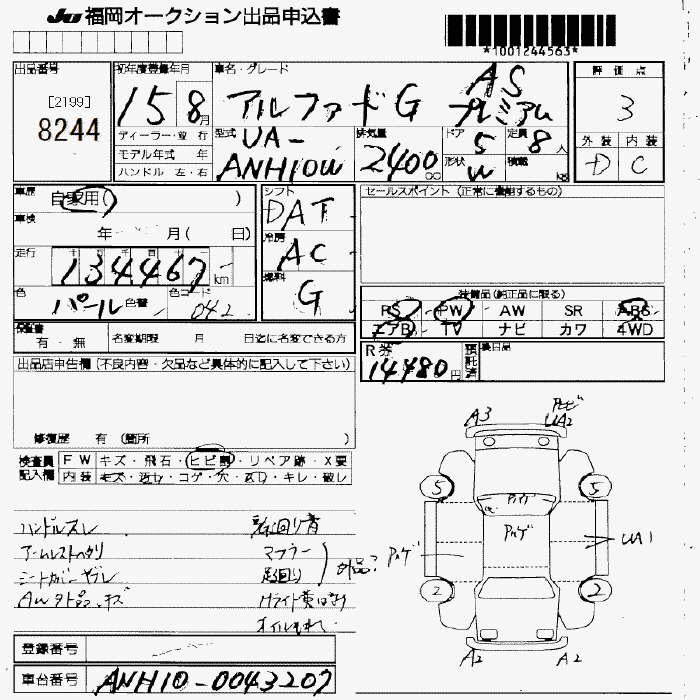 JU 福岡オークション出品申込書
*1001244563*
出品番号
[2199]
8244
初年度登録年月
15 8月
車名・グレード
アルファードG AS プレミアム
評価点
3
外装 内装
D C
ディーラー・並行
モデル年式 年
ハンドル 左・右
型式
UA-
ANH10W
排気量
2400cc
ドア 5
形状 W
定員 8人
積載 kg
車歴
自家用( )
車検
年 月 ( 日)
走行
134467km
色
パール 色替
色コード 042
シフト
DAT
冷房
AC
燃料
G
セールスポイント (正常に機能するもの)
装備品(純正品に限る)
PS PW AW SR ABS
エアB TV ナビ カワ 4WD
保証書
有・無
名変期限 月 日迄に名変できる方
R券
14480円
預託済
後日品
出品店申告欄(不良内容・欠品など具体的に記入して下さい)
修復歴 有 (箇所 )
検査員記入欄
FW キズ・飛石・ヒビ割・リペア跡・X要
内装 キズ・汚れ・コゲ・穴・ヌレ・キレ・破レ
ハンドルスレ
アームレストヘタリ
シートカバーヤブレ
AW外品、キズ
マフラー
足回り
外品?
Hライト黄ばみ
オイルもれ
A3
UA2
5
5
2
2
UA1
A2
A2
登録番号
車台番号
ANH10-0043207